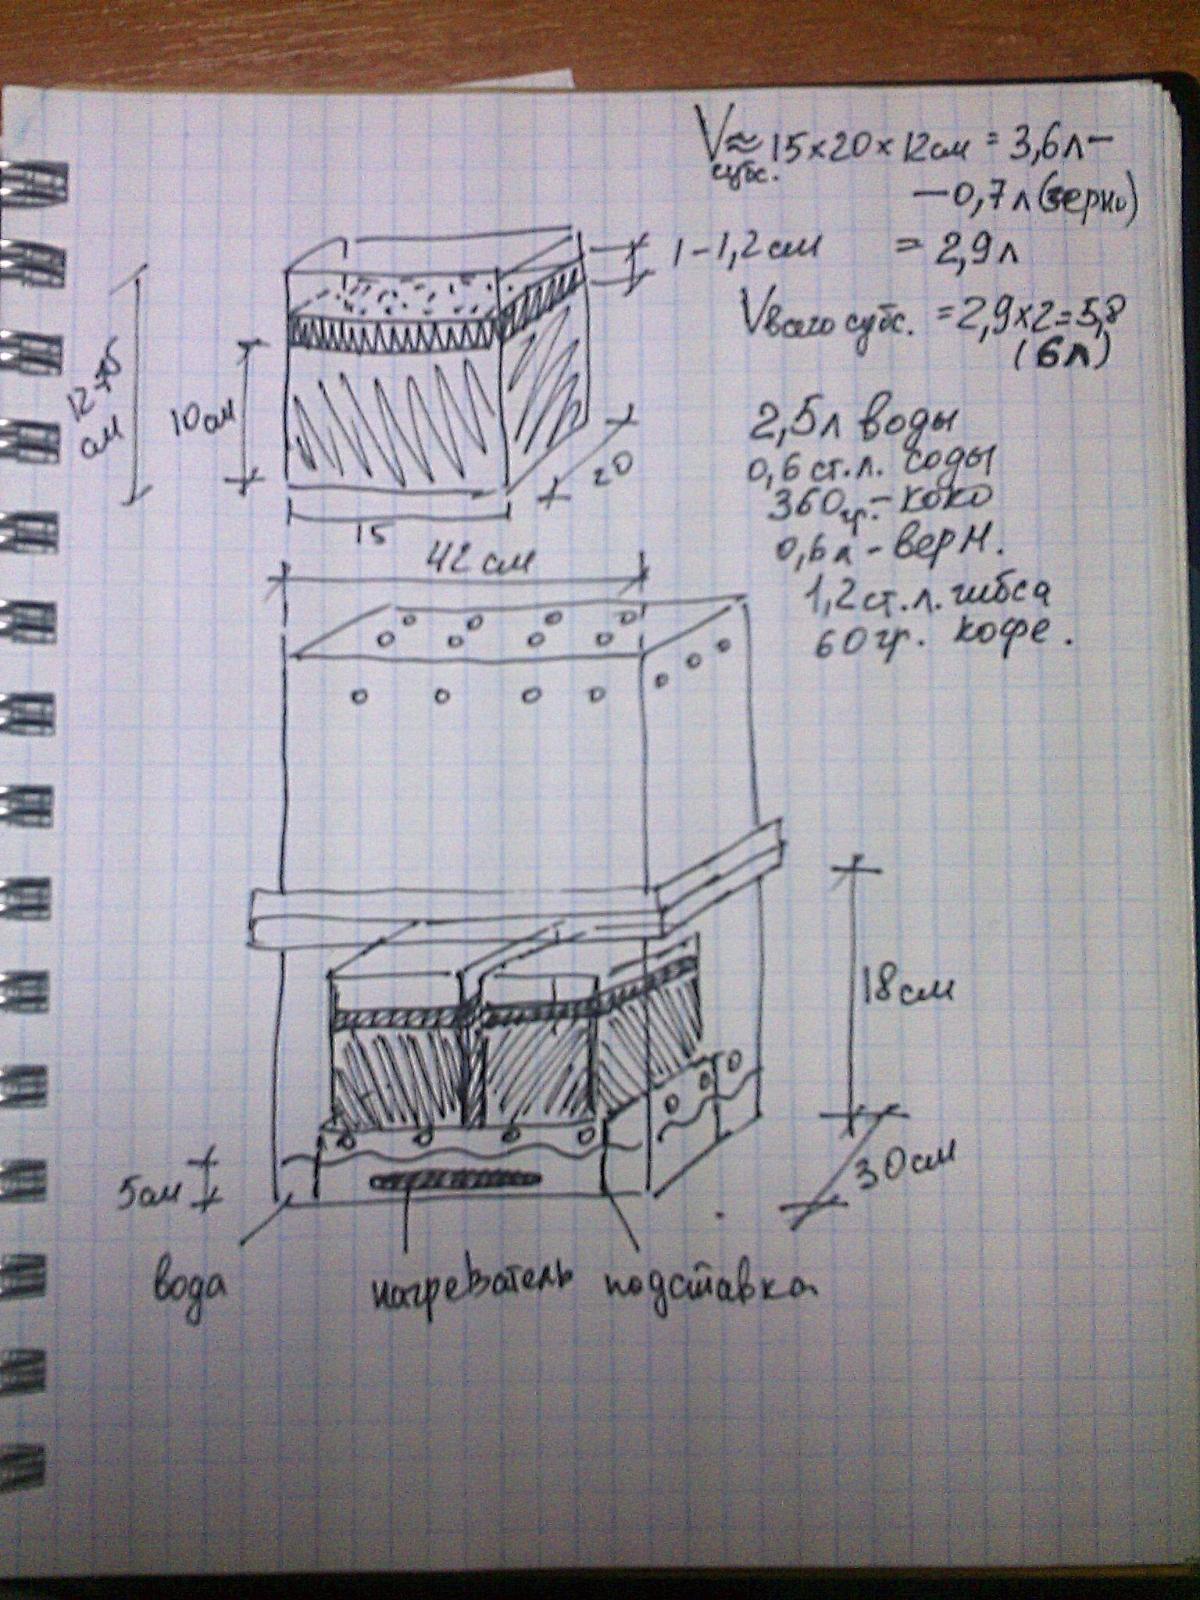 V субс. ≈ 15×20×12см = 3,6л –
– 0,7л (зерно)
1–1,2см = 2,9л
V всего субс. = 2,9×2=5,8
(6л)
см
10см
20
15
2,5л воды
0,6 ст.л. соды
360гр. – коко
0,6л – верм.
1,2 ст.л. гибса
60гр. кофе.
42 см
18см
30см
5см
вода
нагреватель
подставка